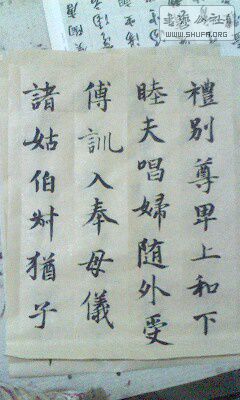 禮別尊卑上和下
睦夫唱婦随外受
傅訓入奉母儀
諸姑伯叔猶子
書藝公社
WWW.SHUFA.ORG